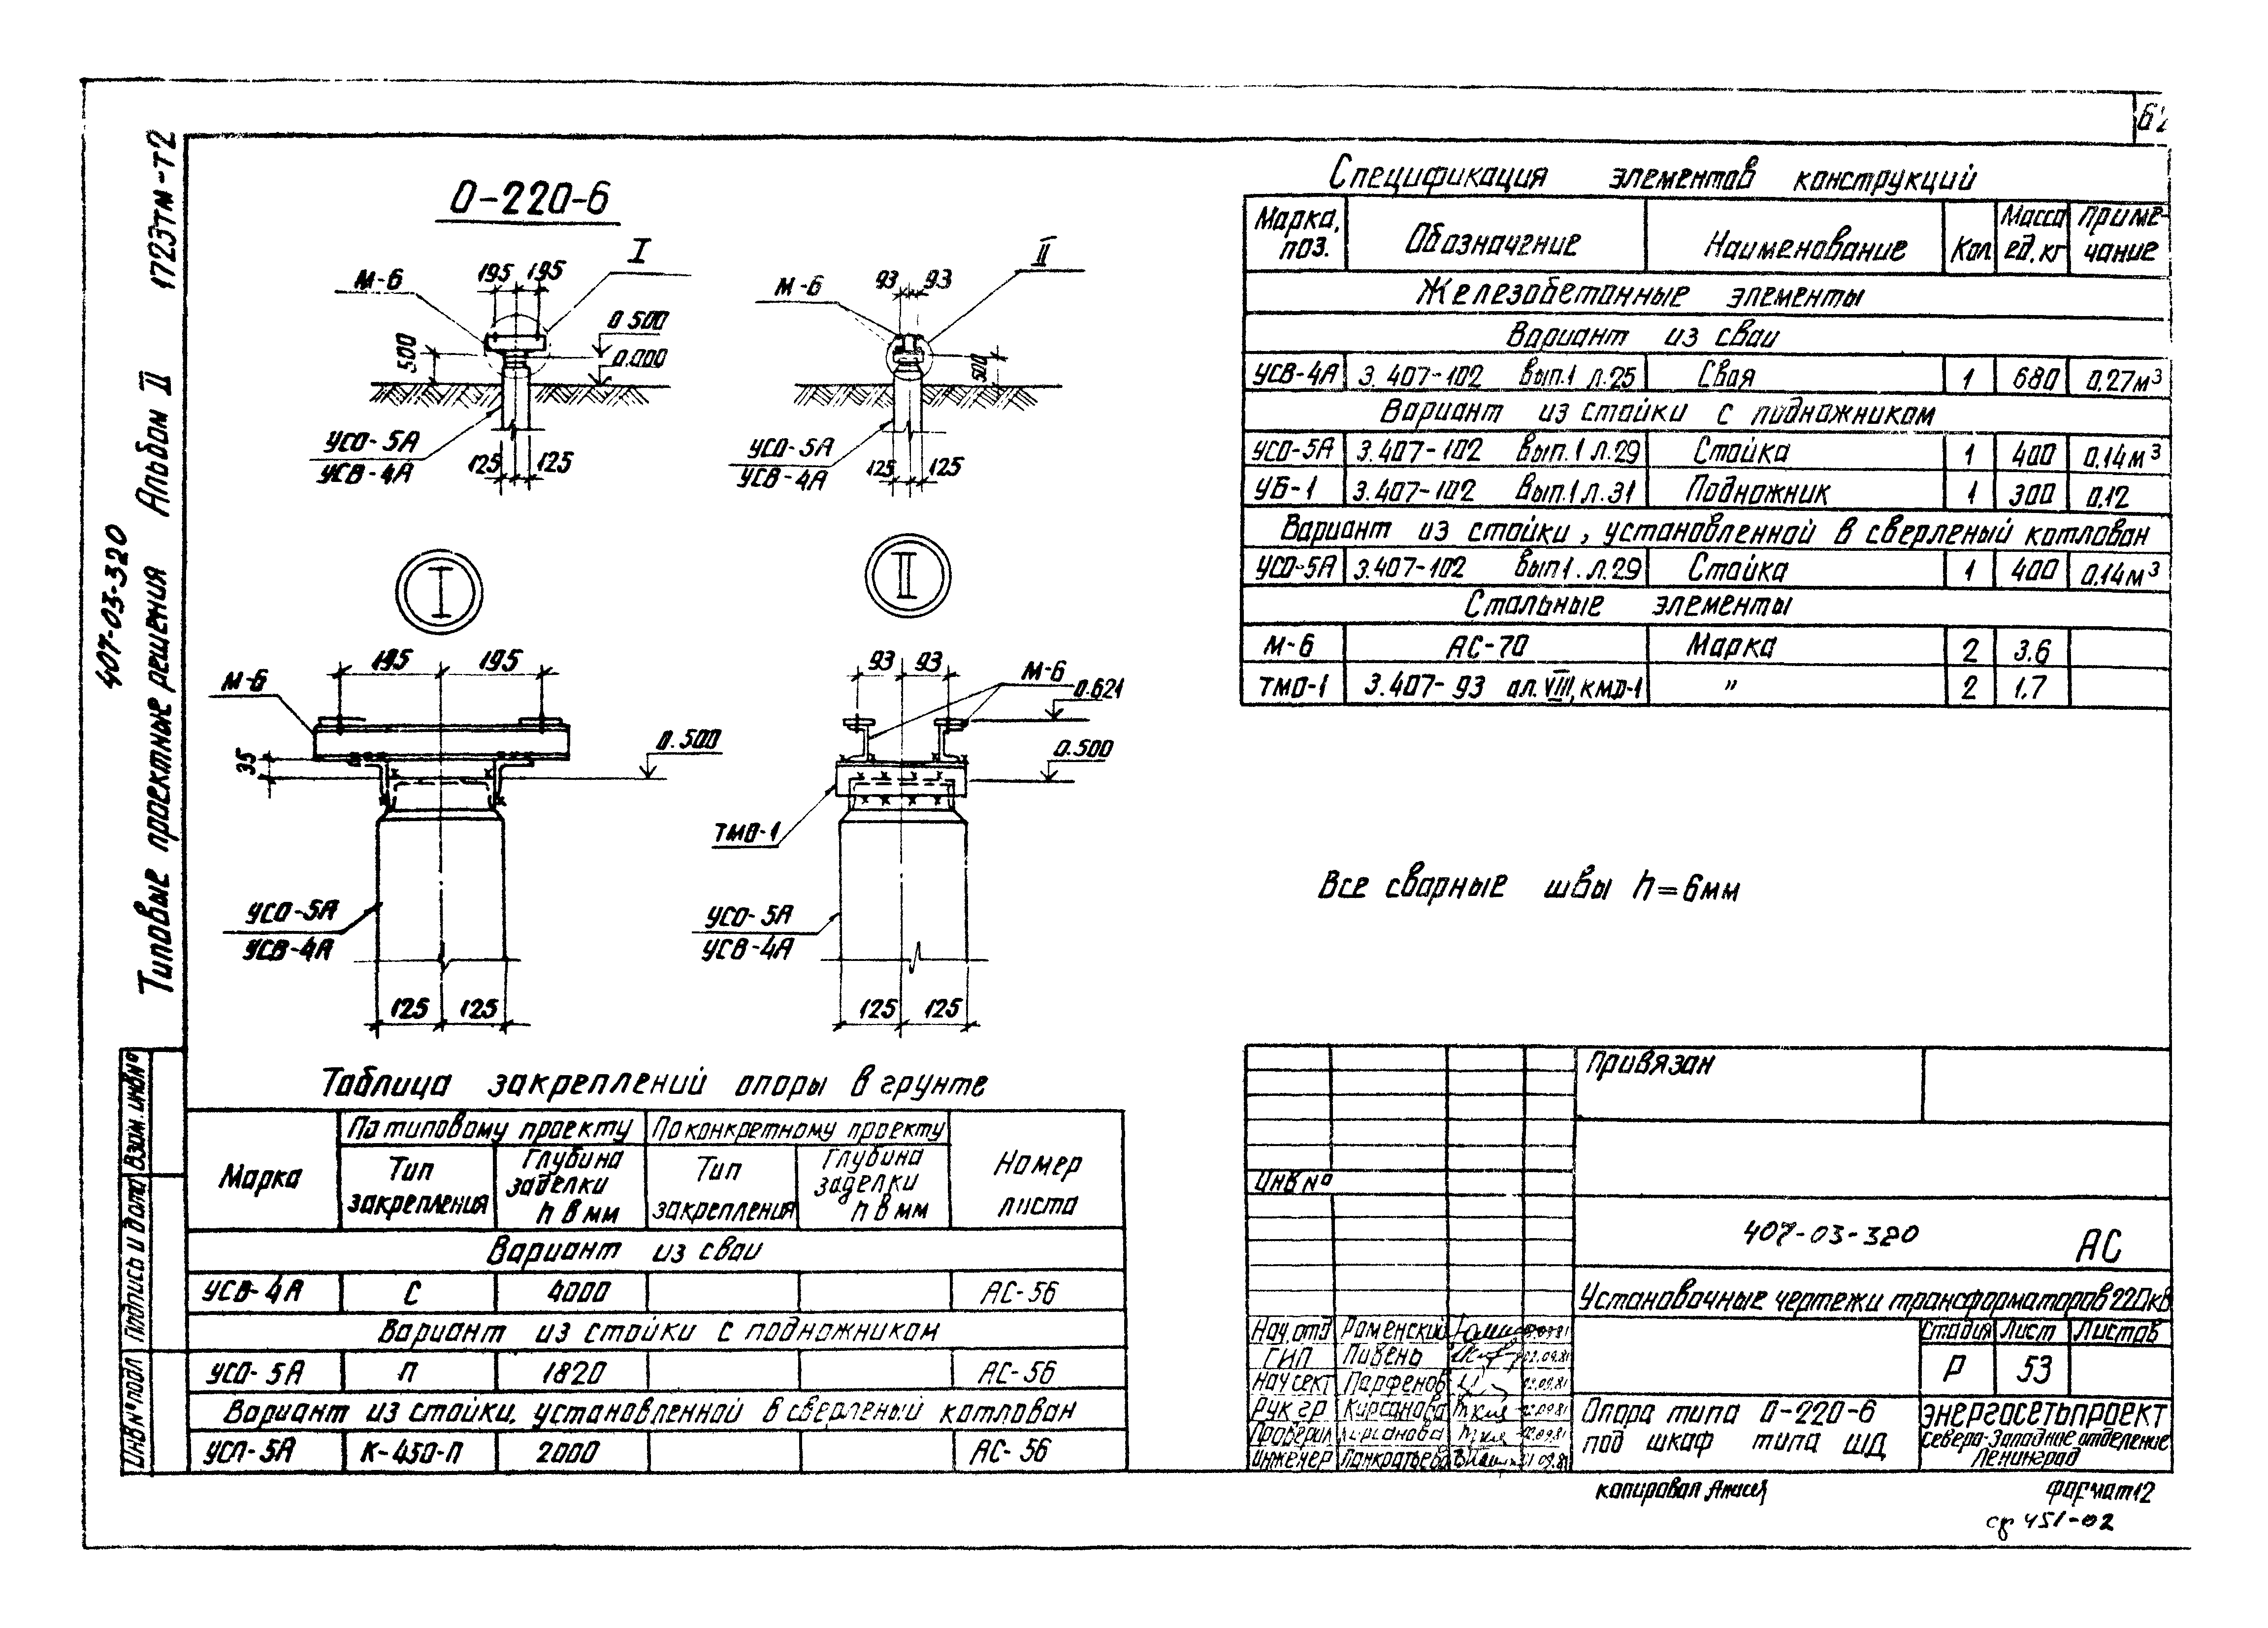 407-03-320
Типовые проектные решения Альбом II 1723тм-т2
О-220-6
I
II
М-6
195 195
М-6
93 93
0.500
0.000
500
500
УСО-5А
УСВ-4А
125 125
УСО-5А
УСВ-4А
125 125
I
II
195 195
М-6
35
0.500
УСО-5А
УСВ-4А
125 125
93 93
М-6
0.621
0.500
ТМО-1
УСО-5А
УСВ-4А
125 125
Спецификация элементов конструкций
Марка, поз. Обозначение Наименование Кол Масса ед. кг Примечание
Железобетонные элементы
Вариант из сваи
УСВ-4А 3.407-102 Вып.1 л.25 Свая 1 680 0.27м³
Вариант из стойки с подножником
УСО-5А 3.407-102 Вып.1 л.29 Стойка 1 400 0.14м³
УБ-1 3.407-102 Вып.1 л.31 Подножник 1 300 0.12
Вариант из стойки, установленной в сверленый котлован
УСО-5А 3.407-102 Вып1.л.29 Стойка 1 400 0.14м³
Стальные элементы
М-6 АС-70 Марка 2 3.6
ТМО-1 3.407-93 ал. VIII, КМД-1 " 2 1.7
Все сварные швы h=6мм
Таблица закреплений опоры в грунте
Марка По типовому проекту По конкретному проекту Номер листа
Тип закрепления Глубина заделки h в мм Тип закрепления Глубина заделки h в мм
Вариант из сваи
УСВ-4А С 4000 АС-56
Вариант из стойки с подножником
УСО-5А П 1820 АС-56
Вариант из стойки, установленной в сверленый котлован
УСО-5А К-450-П 2000 АС-56
Взам. инв№
Подпись и дата
Инв№подл
Привязан
Инв №
407-03-320 АС
Установочные чертежи трансформаторов 220кВ
Нач.отд Раменский
ГИП Пивень 02.09.81
Нач сект Парфенов
Рук гр Кирсанова
Проверил Кирсанова
Инженер Панкратьева
Стадия Лист Листов
Р 53
Опора типа О-220-6
под шкаф типа ШД
ЭНЕРГОСЕТЬПРОЕКТ
Северо-Западное отделение
Ленинград
копировал
формат12
ср 451-02